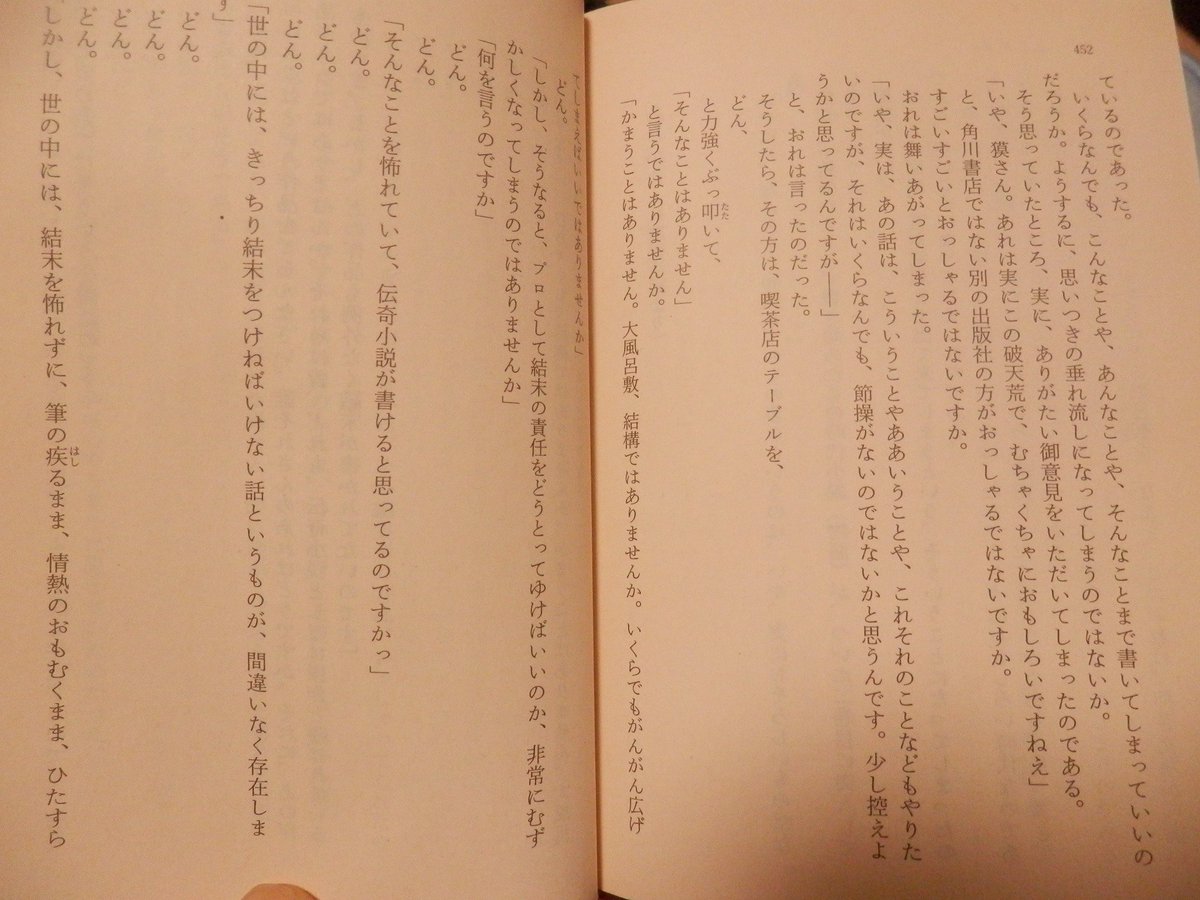 452
ているのであった。
いくらなんでも、こんなことや、あんなことや、そんなことまで書いてしまっていいの
だろうか。ようするに、思いつきの垂れ流しになってしまうのではないか。
そう思っていたところ、実に、ありがたい御意見をいただいてしまったのである。
「いや、獏さん。あれは実にこの破天荒で、むちゃくちゃにおもしろいですねえ」
と、角川書店ではない別の出版社の方がおっしゃるではないですか。
すごいすごいとおっしゃるではないですか。
おれは舞いあがってしまった。
「いや、実は、あの話は、こういうことやああいうことや、これそれのことなどもやりた
いのですが、それはいくらなんでも、節操がないのではないかと思うんです。少し控えよ
うかと思ってるんですが――」
と、おれは言ったのだった。
そうしたら、その方は、喫茶店のテーブルを、
どん、
と力強くぶっ叩いて、
「そんなことはありません」
と言うではありませんか。
「かまうことはありません。大風呂敷、結構ではありませんか。いくらでもがんがん広げ
てしまえばいいではありませんか」
どん。
「しかし、そうなると、プロとして結末の責任をどうとってゆけばいいのか、非常にむず
かしくなってしまうのではありませんか」
「何を言うのですか」
どん。
どん。
「そんなことを怖れていて、伝奇小説が書けると思ってるのですかっ」
どん。
どん。
どん。
「世の中には、きっちり結末をつけねばいけない話というものが、間違いなく存在しま
す」
どん。
どん。
どん。
どん。
「しかし、世の中には、結末を怖れずに、筆の疾るまま、情熱のおもむくまま、ひたすら